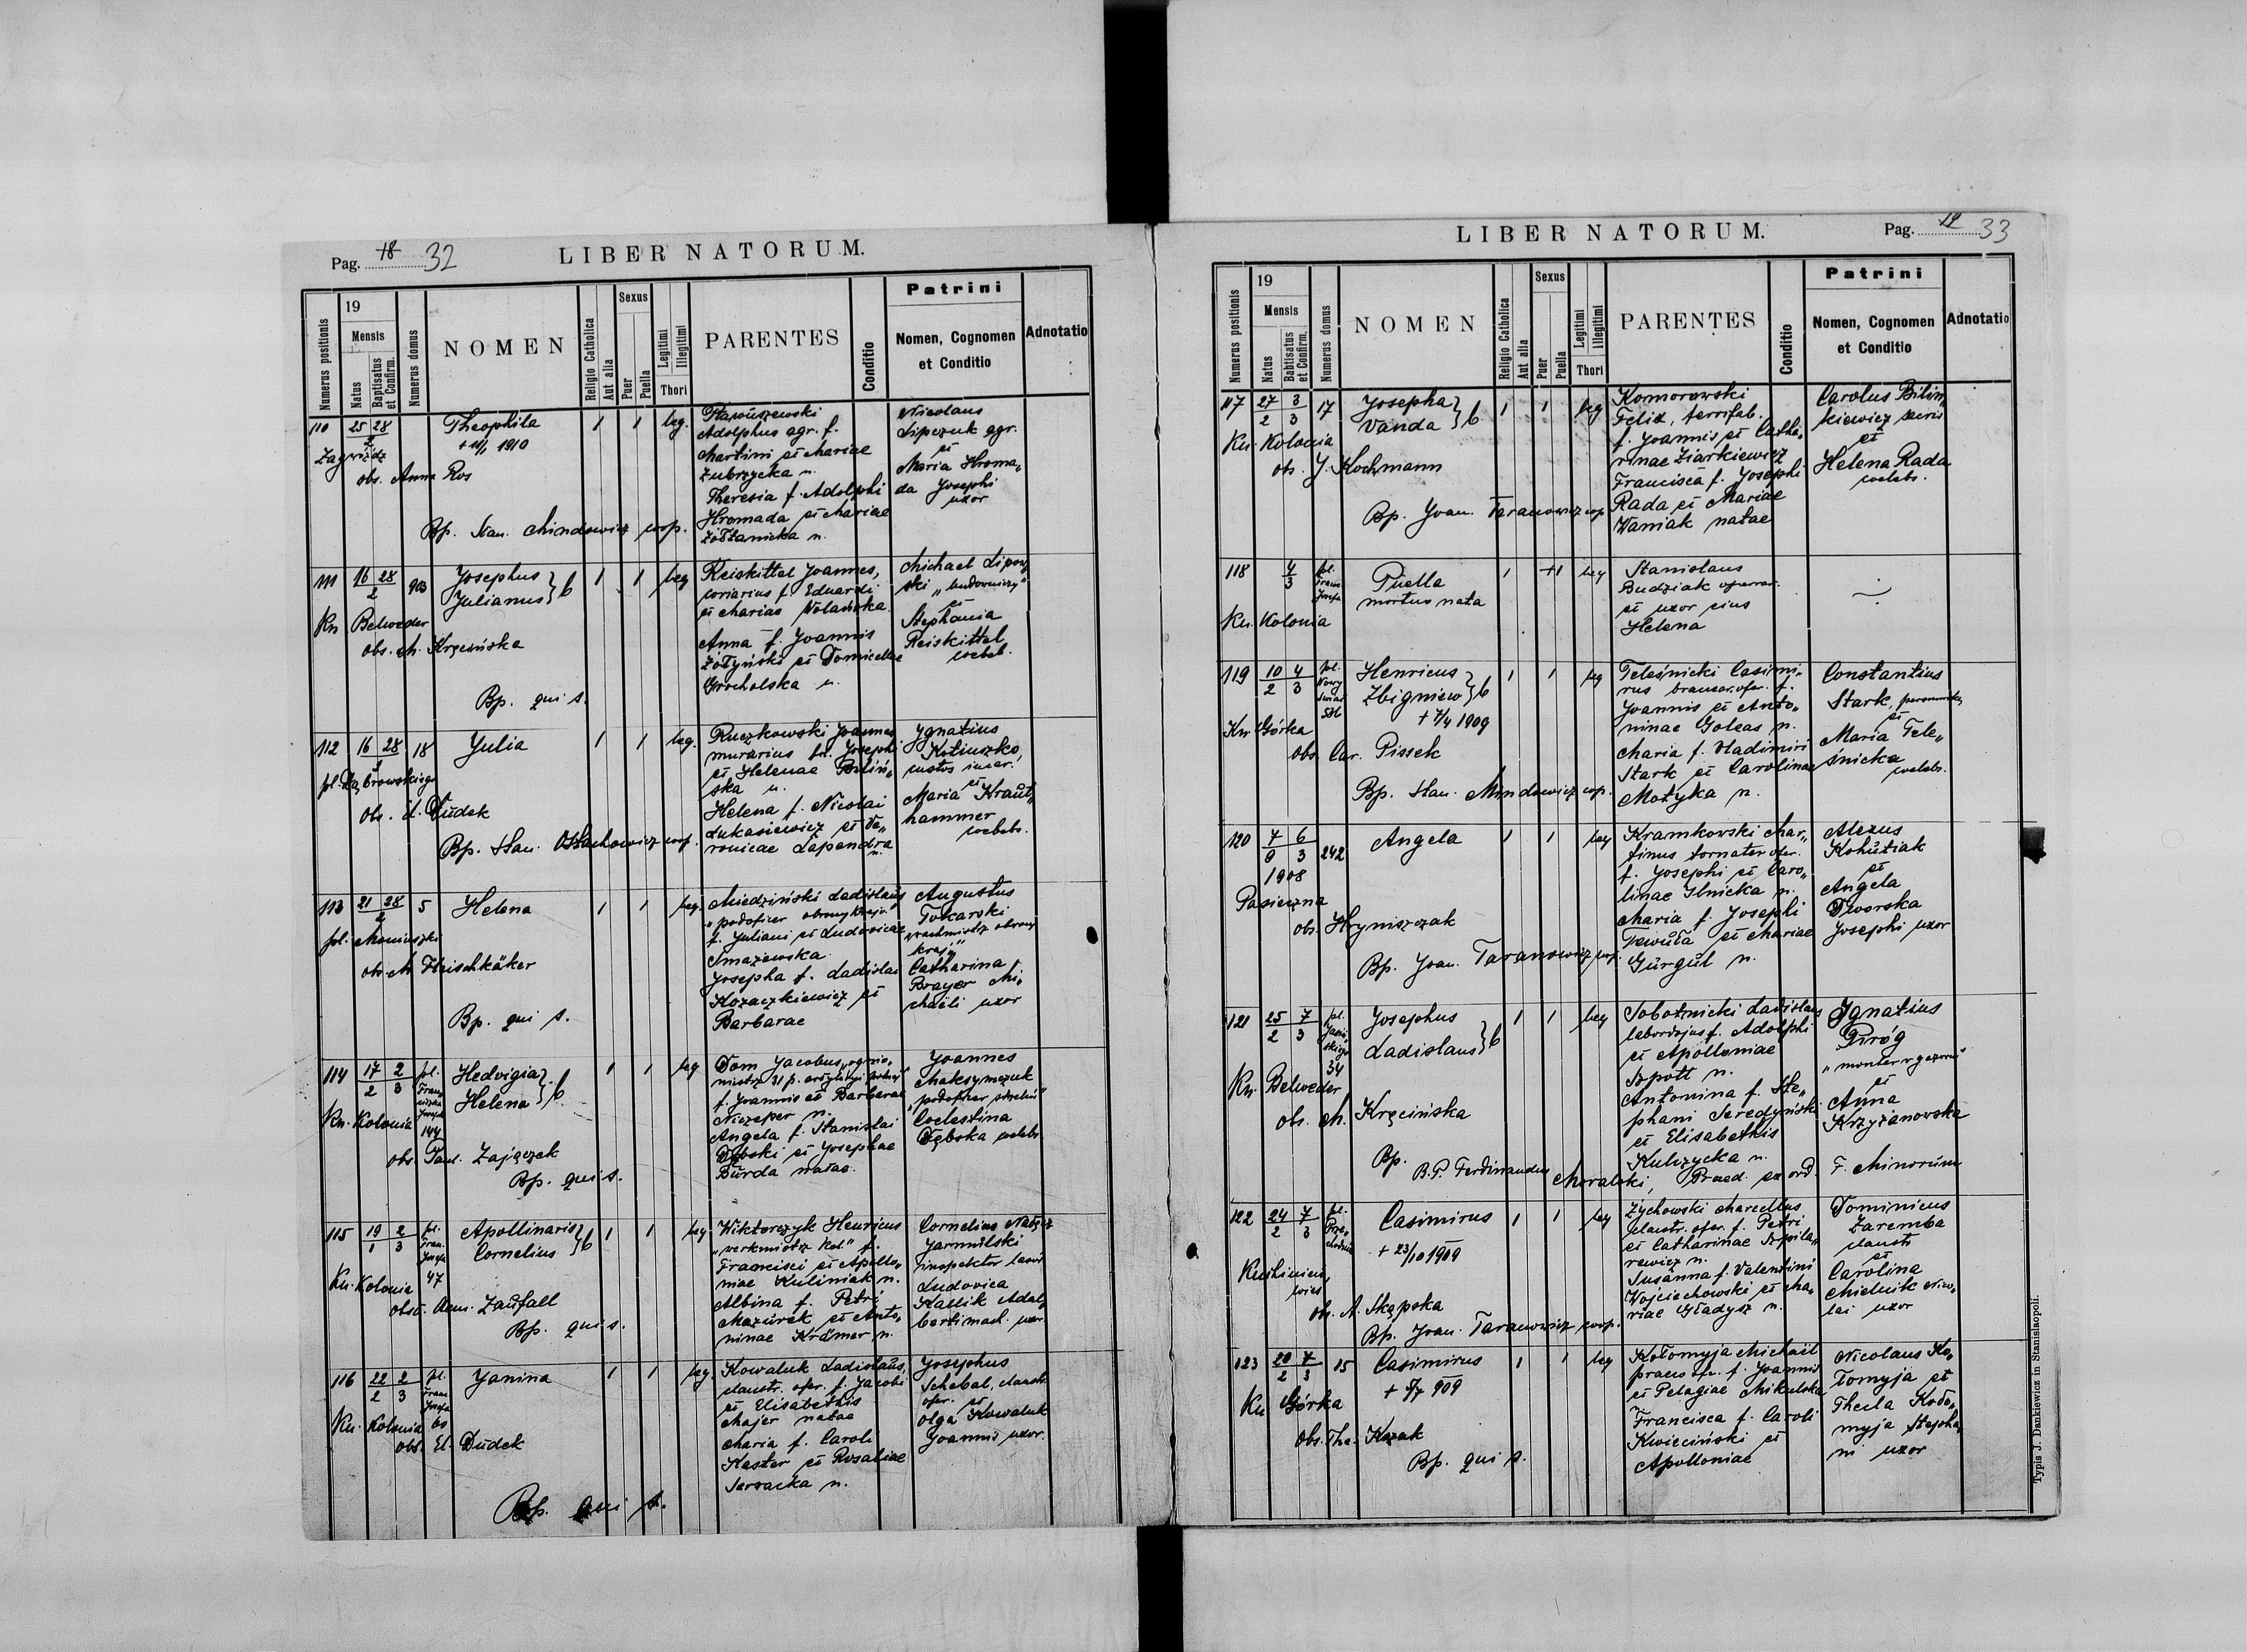 Pag. 18 32
LIBER NATORUM.
Numerus positionis
19
Mensis
Natus
Babtisatus et Confirm.
Numerus domus
NOMEN
Religio Catholica
Aut alia
Sexus
Puer
Puella
Legitimi
Illegitimi
Thori
PARENTES
Conditio
Patrini
Nomen, Cognomen
et Conditio
Adnotatio
110
25 28
2
Zagwóźdz
Theophila
+ 11/1 1910
obs. Anna Ros
Bp. Stan. Mindowicz coop.
1 1 leg.
Adolphus agr. f.
Martini et Mariae
Zubrzycka n.
Theresia f. Adolphi
Hromada et Mariae
n.
Nicolaus
Lipczuk agr.
et
Maria Hroma„
da Josephi
uxor
111
16 28
2
903
Kn Belweder
Josephus
Julianus } b
obs. M. Kręcińska
Bp. qui s.
1 1 leg
Reiskittel Joannes,
coriarius f. Eduardi
et Mariae Wolańska
Anna f. Joannis
Żołyński et Domicellae
Grocholska n.
Michael Lipow„
ski „budowniczy"
et
Stephania
Reiskittel
coeleb.
112
16 28
18
Julia
obs. A. Dudek
Bp. Stan. Ostachowicz coop.
1 1 leg.
Ruczkowski Joannes
murarius fil. Josephi
et Helenae Biliń„
ska n.
Helena f. Nicolai
Łukasiewicz et Ve„
ronicae Lapendra
n.
Ignatius
Kotiuszko,
custos
et
Maria Kraut„
hammer
coelebs.
113
21 28
2
5
pl. Moniuszki
Helena
obs. M. Fleischhäker
Bp. qui s.
1 1 leg.
Miedziński Ladislaus
„podoficer obrony kraju"
f. Juliani et Ludovicae
Smażewska
Josepha f. Ladislai
Kozaczkiewicz et
Barbarae
Augustus
Tokarski
wachmistrz obrony
kraju"
Catharina
Brayer Mi„
chaëli uxor
114
17 2
2 3
144
Kn. Kolonia
Hedvigia
Helena } b
obs. Paul. Zajączek
Bp. qui s.
1 1 leg
Dom Jacobus, „ognio„
mistrz 31 p. artyleryi
f. Joannis et Barbarae
n.
Angela f. Stanislai
Dębski et Josephae
Burda natae.
Joannes
Maksymczuk
Coelestina
Dębska coelebs
115
19 2
1 3
pl.
Fran.
Josefa
47
Kn. Kolonia
Apollinaris
Cornelius } b
Zaufall
Bp. qui s.
1 1 leg.
Wiktorczyk Henricus
„werkmistrz kol." f.
Francisci et Apollo„
niae Kuliniak n.
Albina f. Petri
Mazurek et Anto„
ninae Krämer n.
Cornelius
Jarmulski
inspektor
Ludovica
116
22 2
2 3
pl.
Franc
Josefa
60
Kn. Kolonia
Janina
obs. El. Dudek
Bp. qui s.
1 1 leg.
Kowaluk Ladislaus,
claustr. ofer. f. Jacobi
et Elisabethis
Majer natae
Maria f. Caroli
Kaster et Rosaliae
n.
Josephus
Schebal, claustr.
ofer. et
Olga Kowaluk
Joannis uxor.
LIBER NATORUM.
Pag. 19 33
Numerus positionis
19
Mensis
Natus
Babtisatus et Confirm.
Numerus domus
NOMEN
Religio Catholica
Aut alia
Sexus
Puer
Puella
Legitimi
Illegitimi
Thori
PARENTES
Conditio
Patrini
Nomen, Cognomen
et Conditio
Adnotatio
117
27 3
2 3
17
Kn. Kolonia
Josepha
Vanda } b
obs. J. Kochmann
Bp. Joan. Taranowicz coop
1 1 leg
Komorowski
Felix, ferrifab.
f. Joannis et Catha„
rinae Ziarkiewicz
Francisca f. Josephi
Rada et Mariae
Waniak natae
Carolus Bilin„
kiewicz
et
Helena Rada
coelebs.
118
4
3
pl.
Franc
Josefa
Kn. Kolonia
Puella
mortuo nata
1 +1 leg
Stanislaus
Budziak operar.
et uxor eius
Helena
119
10 4
2 3
pl.
Nowy
Świat
Kn Górka
Henricus
Zbigniew } b
+ 7/4 1909
obs. Car. Pissek
Bp. Stan. Mindowicz coop.
1 1 leg
Teleśnicki Casimi„
rus f.
Joannis et Anto„
ninae Goleas n.
Maria f. Vladimiri
Stark et Carolinae
Motyka n.
Constantius
Stark,
et
Maria Tele„
śnicka
coelebs.
120
7 6
9 3
1908
242
Pasieczna
Angela
obs. Hryniszczak
Bp. Joan. Taranowicz coop.
1 1 leg
Kramkowski Mar„
tinus tornator ofer.
f. Josephi et Caro„
linae Ilnicka n.
Maria f. Josephi
et Mariae
Gurgul n.
Alexus
Kohutiak
et
Angela
Dworska
Josephi uxor
121
25 7
2 3
pl.
34
Kn. Belweder
Josephus
Ladislaus } b
obs. M. Kręcińska
Bp.
B. P. Ferdinandus Moralski, ex ord. F. Minorum
1 1 leg
Sobotnicki Ladislaus
f. Adolphi
et Apolloniae
Szpott n.
Antonina f. Ste„
phani Seredyński
et Elisabethis
Kulczycka n.
Ignatius
Piróg
et
Anna
Krzyżanovska
122
24 7
2 3
pl.
Casimirus
+ 23/10 1909
obs. A. Skąpska
Bp. Joan. Taranowicz coop.
1 1 leg
Żychowski Marcellus
claustr. ofer. f. Petri
et Catharinae Szpila„
rewicz n.
Susanna f. Valentini
Wojciechowski et Ma„
riae Gładysz n.
Dominicus
Zaremba
claustr
et
Carolina
Mielnik Nico„
lai uxor
123
20 7
2 3
15
Kn Górka
Casimirus
+ 5/7 909
obs. The. Kozak
Bp. qui s.
1 1 leg
Kołomyja Michaël
f. Joannis
et Pelagiae Mikulska
Francisca f. Caroli
Kwieciński et
Apolloniae
Nicolaus Ko„
łomyja et
Thecla Koło„
myja Stepha„
ni uxor
Typis J. Dankiewicz in Stanislaopoli.